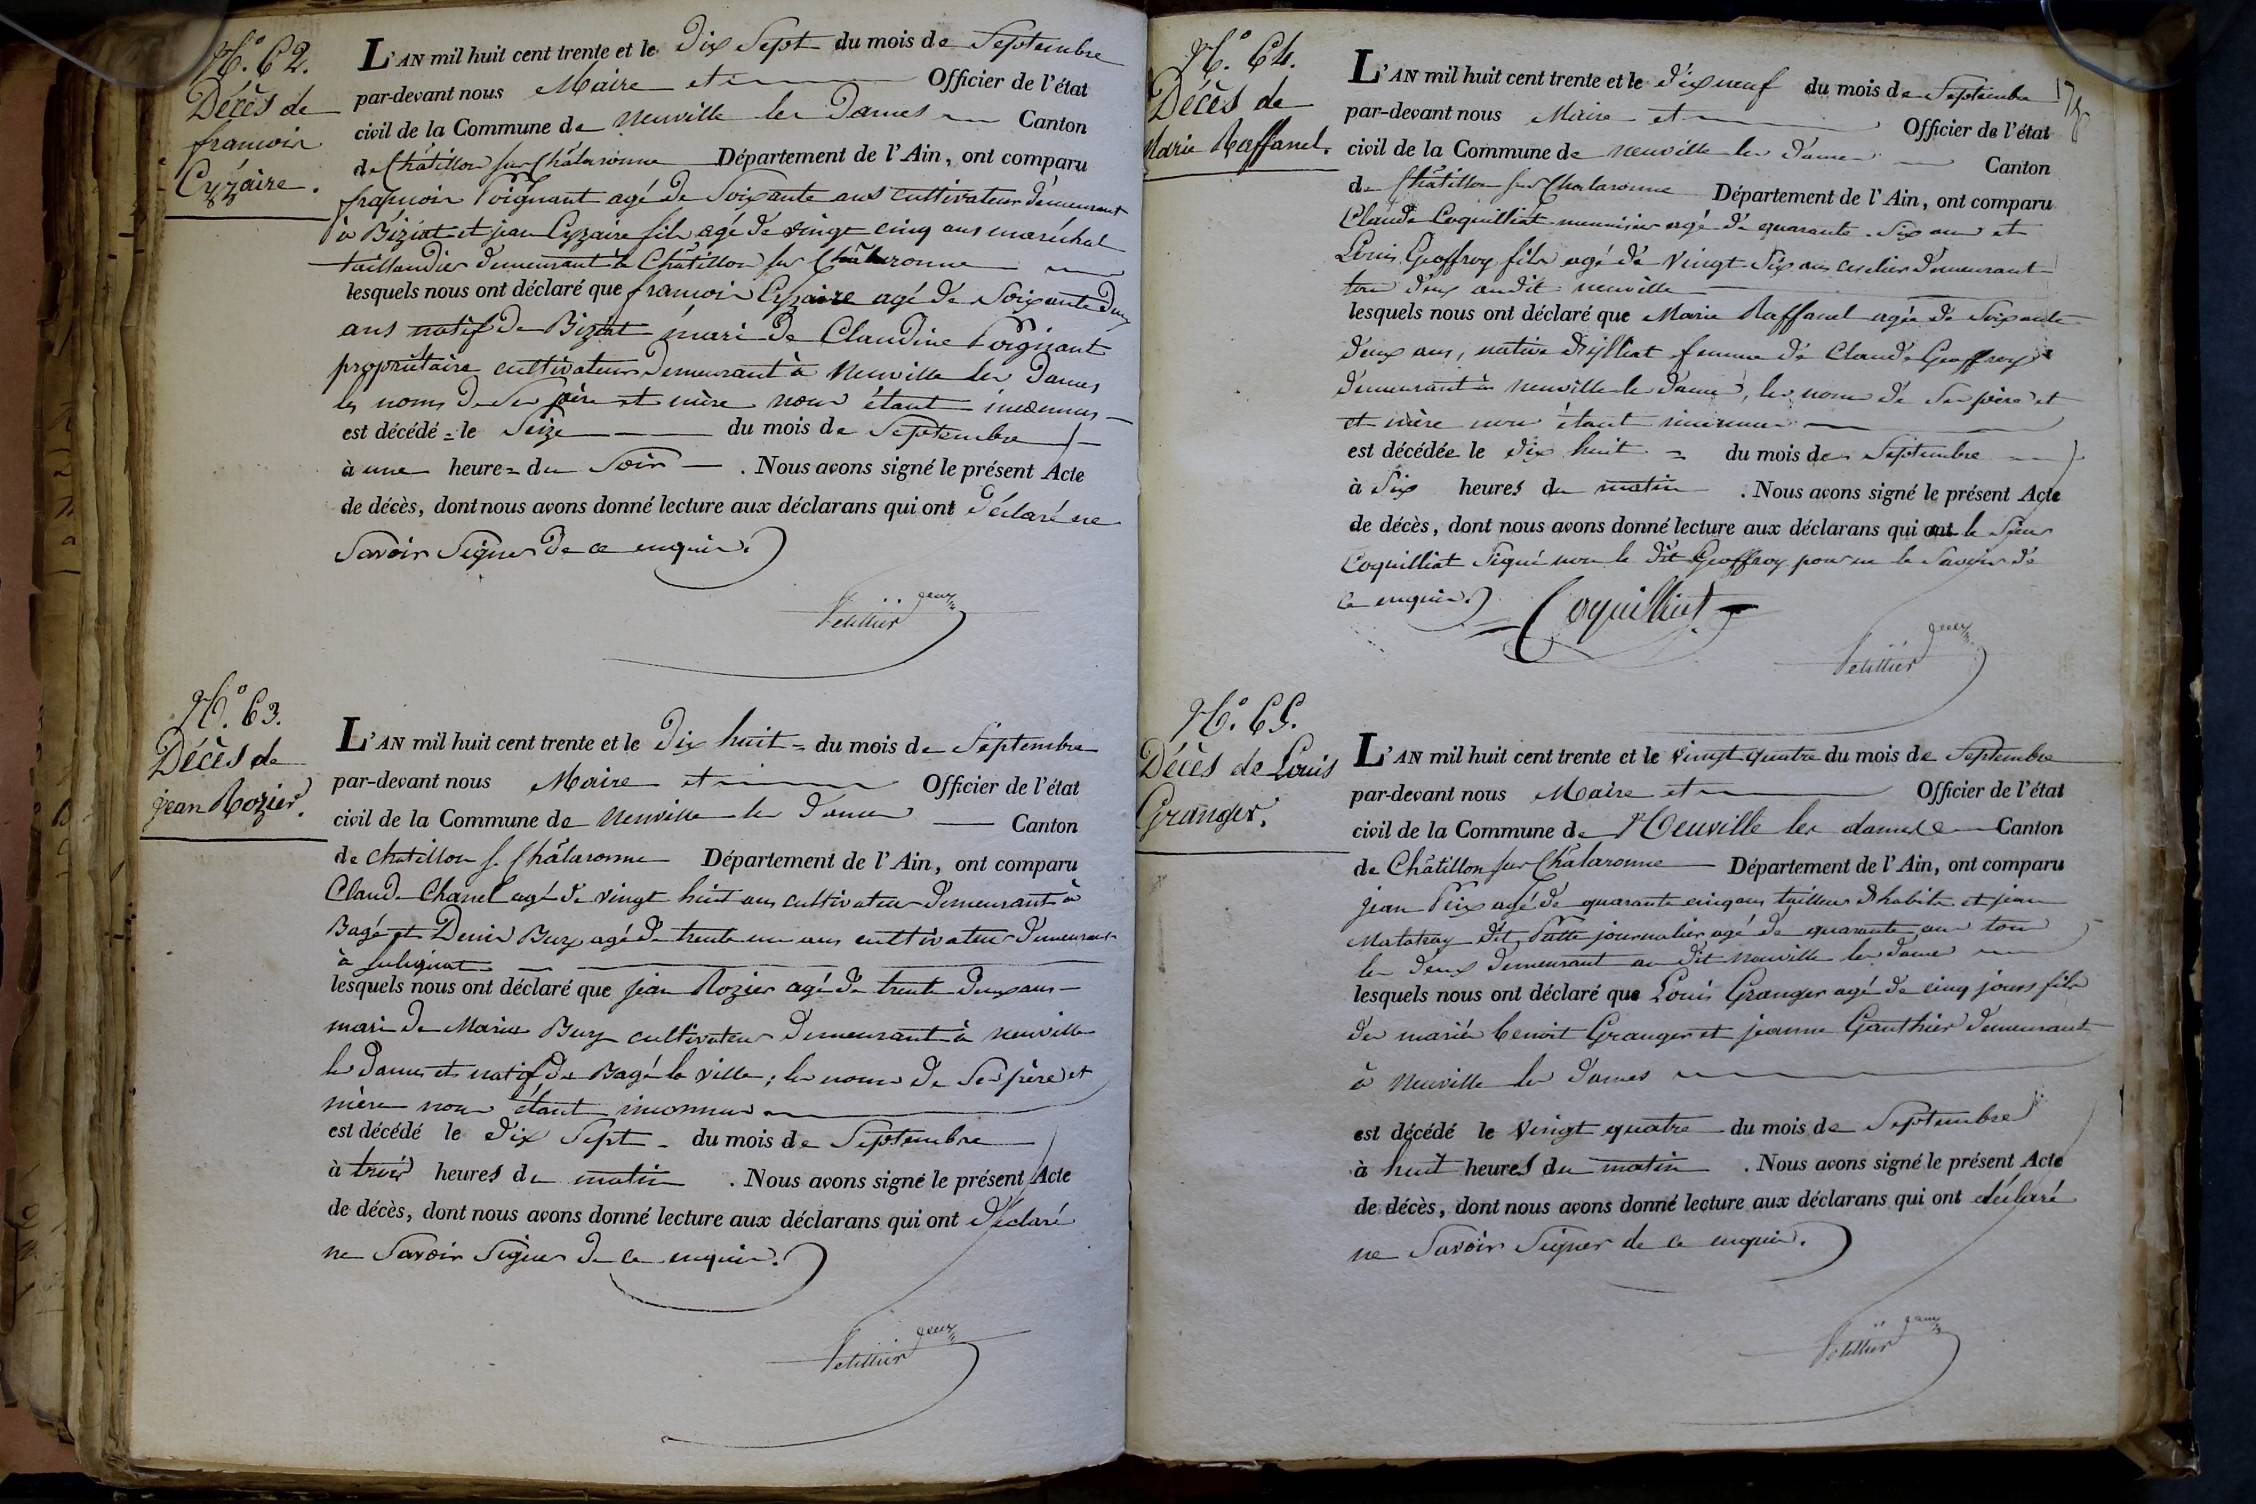 N.º 62.
Décès de
françois
Cyzaire.
L'AN mil huit cent trente et le Dix Sept du mois de Septembre
par-devant nous Maire et Officier de l'état
civil de la Commune de Neuville les Dames Canton
de Châtillon sur Chalaronne Département de l'Ain, ont comparu
françois Poignant agé de Soixante ans cultivateur demeurant
à Biziat et jean Cyzaire fils agé de vingt cinq ans maréchal
taillandier demeurant à Châtillon sur Chalaronne
lesquels nous ont déclaré que françois Cyzaire agé de Soixante Deux
ans natif de Biziat mari de Claudine Poignant
propriétaire cultivateur demeurant à Neuville les Dames
les noms de Ses père et mère nous étant inconnus
est décédé = le Seize du mois de Septembre
à une heure = du Soir . Nous avons signé le présent Acte
de décès, dont nous avons donné lecture aux déclarans qui ont Déclaré ne
Savoir Signer de ce enquis.
jeune
N.º 63.
Décès de
jean Rozier.
L'AN mil huit cent trente et le Dix huit = du mois de Septembre
par-devant nous Maire et Officier de l'état
civil de la Commune de Neuville les Dames Canton
de Chatillon s. Châlaronne Département de l'Ain, ont comparu
Claude Chanel agé de vingt huit ans cultivateur demeurant à
Bagé et Denis Buy agé de trente un ans cultivateur demeurant
à
lesquels nous ont déclaré que jean Rozier agé de trente deux ans
mari de Marie Buy cultivateur demeurant à Neuville
les Dames et natif de Bagé la ville ; les noms de Ses père et
mère nous étant inconnus
est décédé le dix Sept = du mois de Septembre
à trois heures du matin . Nous avons signé le présent Acte
de décès, dont nous avons donné lecture aux déclarans qui ont déclaré
ne Savoir Signer de ce enquis.
jeune
N.º 64.
Décès de
Marie Raffanel.
L'AN mil huit cent trente et le dix neuf du mois de Septembre
par-devant nous Maire et Officier de l'état
civil de la Commune de Neuville les Dames Canton
de Châtillon sur Chalaronne Département de l'Ain, ont comparu
Claude Coquilliat menuisier agé de quarante Six ans et
Louis Geoffroy fils agé de Vingt Six ans demeurant
tous deux audit neuville
lesquels nous ont déclaré que Marie Raffanel agée de Soixante
deux ans, native d'illiat femme de Claude Geoffroy
demeurant à Neuville les Dames, les noms de Ses père et
et mère nous étant inconnus
est décédée le dix huit = du mois de Septembre
à Six heures du matin . Nous avons signé le présent Acte
de décès, dont nous avons donné lecture aux déclarans qui ont le Sieur
Coquilliat Signé non le dit Geoffroy pour ne le Savoir de
ce enquis.
Coquilliat
jeune
N.º 65.
Décès de Louis
Granger.
L'AN mil huit cent trente et le vingt quatre du mois de Septembre
par-devant nous Maire et Officier de l'état
civil de la Commune de Neuville les dames Canton
de Châtillon sur Châlaronne Département de l'Ain, ont comparu
jean agé de quarante cinq ans tailleur d'habits et jean
Matatray dit journalier agé de quarante ans tous
les deux demeurant au dit Neuville les Dames
lesquels nous ont déclaré que Louis Granger agé de cinq jours fils
des mariés benoit Granger et jeanne Gauthier demeurant
à Neuville les Dames
est décédé le Vingt quatre du mois de Septembre
à huit heures du matin . Nous avons signé le présent Acte
de décès, dont nous avons donné lecture aux déclarans qui ont déclaré
ne Savoir Signer de ce enquis.
jeune